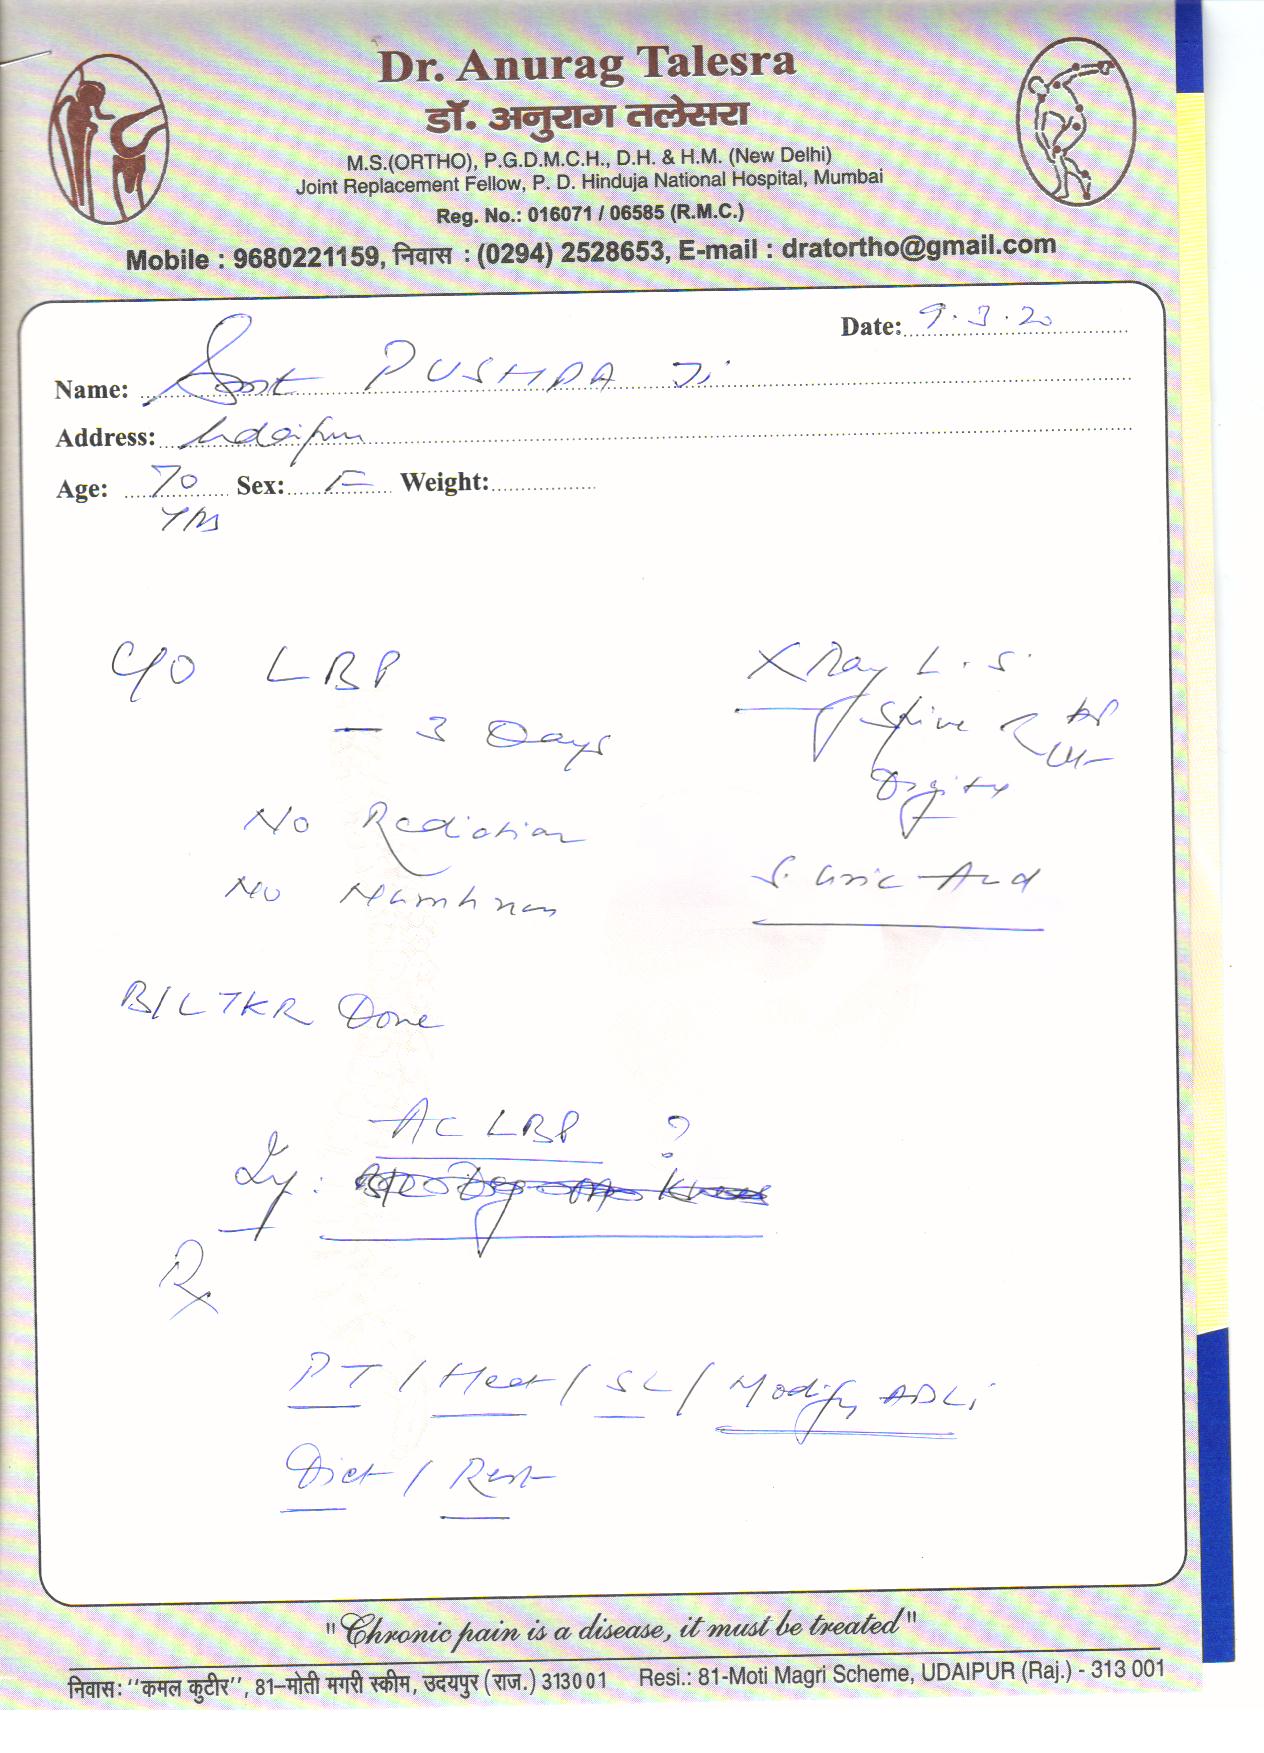 Dr. Anurag Talesra
डॉ. अनुराग तलेसरा
M.S.(ORTHO), P.G.D.M.C.H., D.H. & H.M. (New Delhi)
Joint Replacement Fellow, P. D. Hinduja National Hospital, Mumbai
Reg. No.: 016071 / 06585 (R.M.C.)
Mobile : 9680221159, निवास : (0294) 2528653, E-mail : dratortho@gmail.com
Date: 9.3.20
Name: Smt PUSHPA Ji
Address: Udaipur
Age: 70 Sex: F Weight:
Yrs
C/O LBP
– 3 Days
No Radiation
No Numbness
X Ray L.S.
Spine AP
S. Uric Acid
B/L TKR Done
AC LBP ?
Rx
PT / Heat / SL / Modify ADLs
Diet / Rest
"Chronic pain is a disease, it must be treated"
निवास: ‘‘कमल कुटीर’’, 81–मोती मगरी स्कीम, उदयपुर (राज.) 313001 Resi.: 81-Moti Magri Scheme, UDAIPUR (Raj.) - 313 001